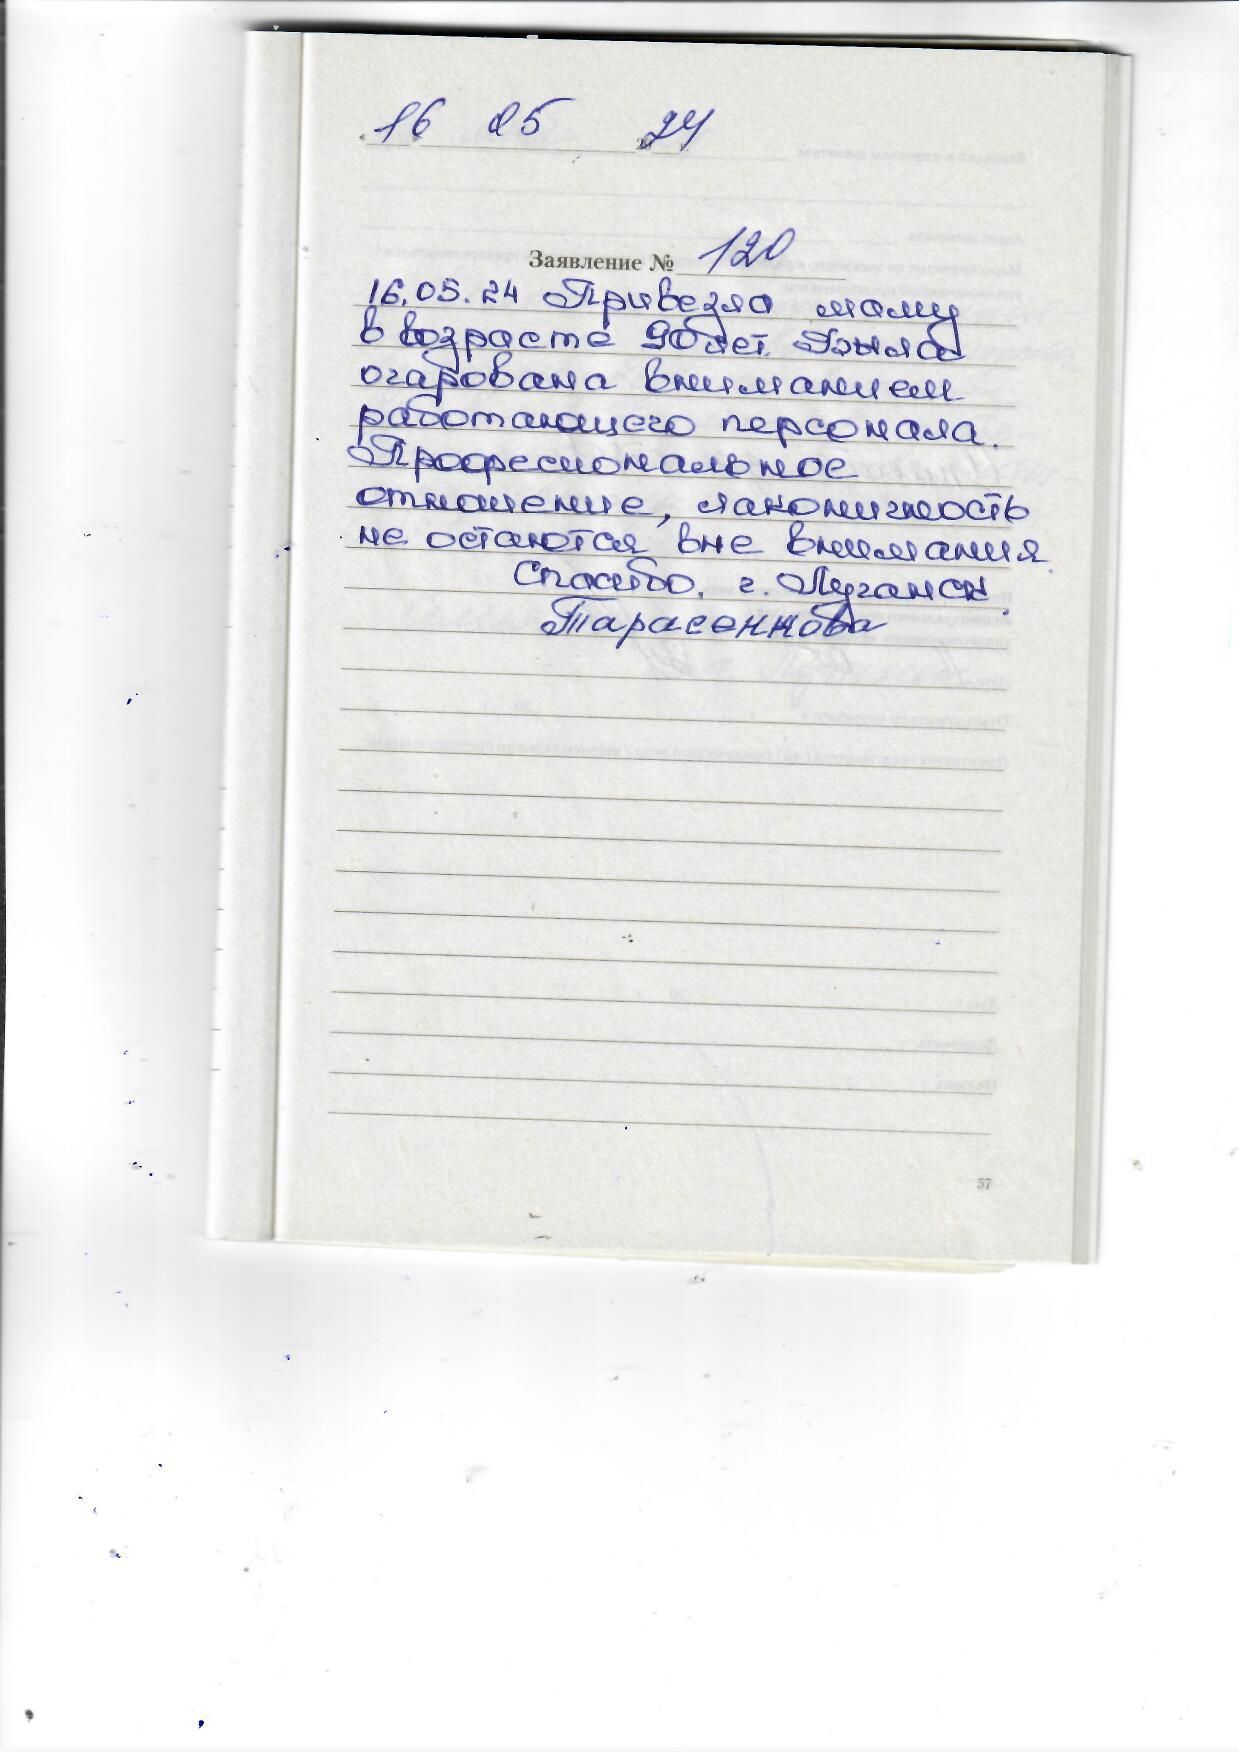 16 05 24
Заявление № 120
16.05.24 Привезла маму
в возрасте 90 лет. Была
очарована вниманием
работающего персонала.
Профессиональное
отношение, лаконичность
не остаются вне внимания.
Спасибо. г. Луганск.
Тарасеннкова
57